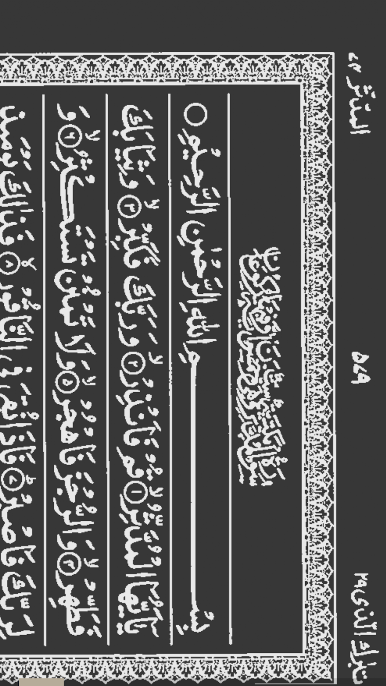 تبارك الذى ٢٩ المدثر ٧٤
بِسْمِ اللهِ الرَّحْمٰنِ الرَّحِيْمِ ○
يٰٓاَيُّهَا الْمُدَّثِّرُ ۙ﴿١﴾ قُمْ فَاَنْذِرْ ۙ﴿٢﴾ وَرَبَّكَ فَكَبِّرْ ۙ﴿٣﴾ وَثِيَابَكَ
فَطَهِّرْ ۙ﴿٤﴾ وَالرُّجْزَ فَاهْجُرْ ۙ﴿٥﴾ وَلَا تَمْنُنْ تَسْتَكْثِرُ ۙ﴿٦﴾ وَ
لِرَبِّكَ فَاصْبِرْ ؕ﴿٧﴾ فَاِذَا نُقِرَ فِى النَّاقُوْرِ ۙ﴿٨﴾ فَذٰلِكَ يَوْمَئِذٍ